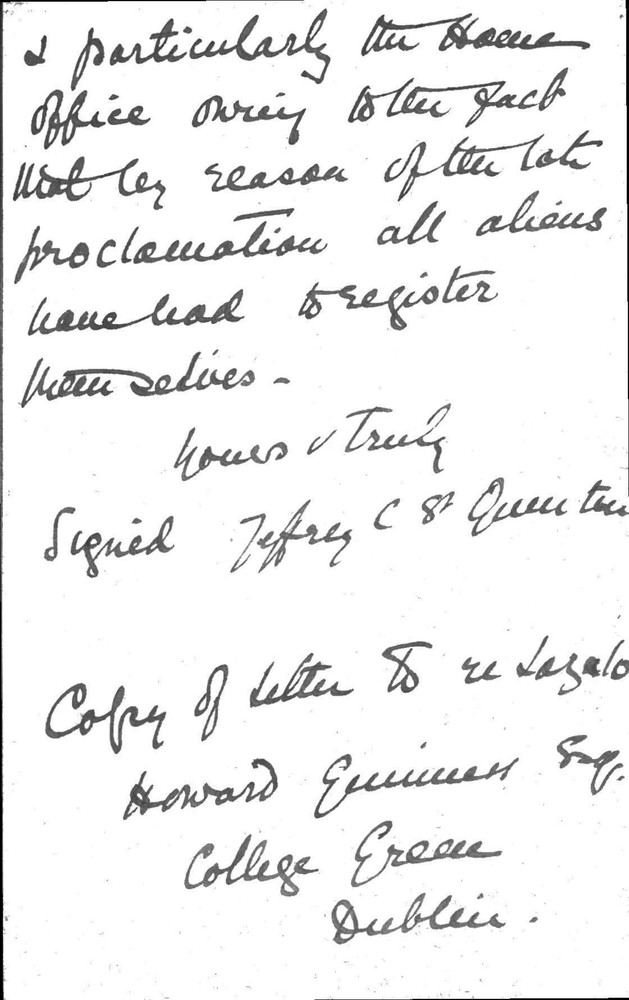 & particularly the Home
office owing to the fact
that by reason of the late
proclamation all aliens
have had to register
themselves -
yours truly
Signed Jeffrey C St Quentin
Copy of letter to re
Howard Guinness Esq.
College Green
Dublin.